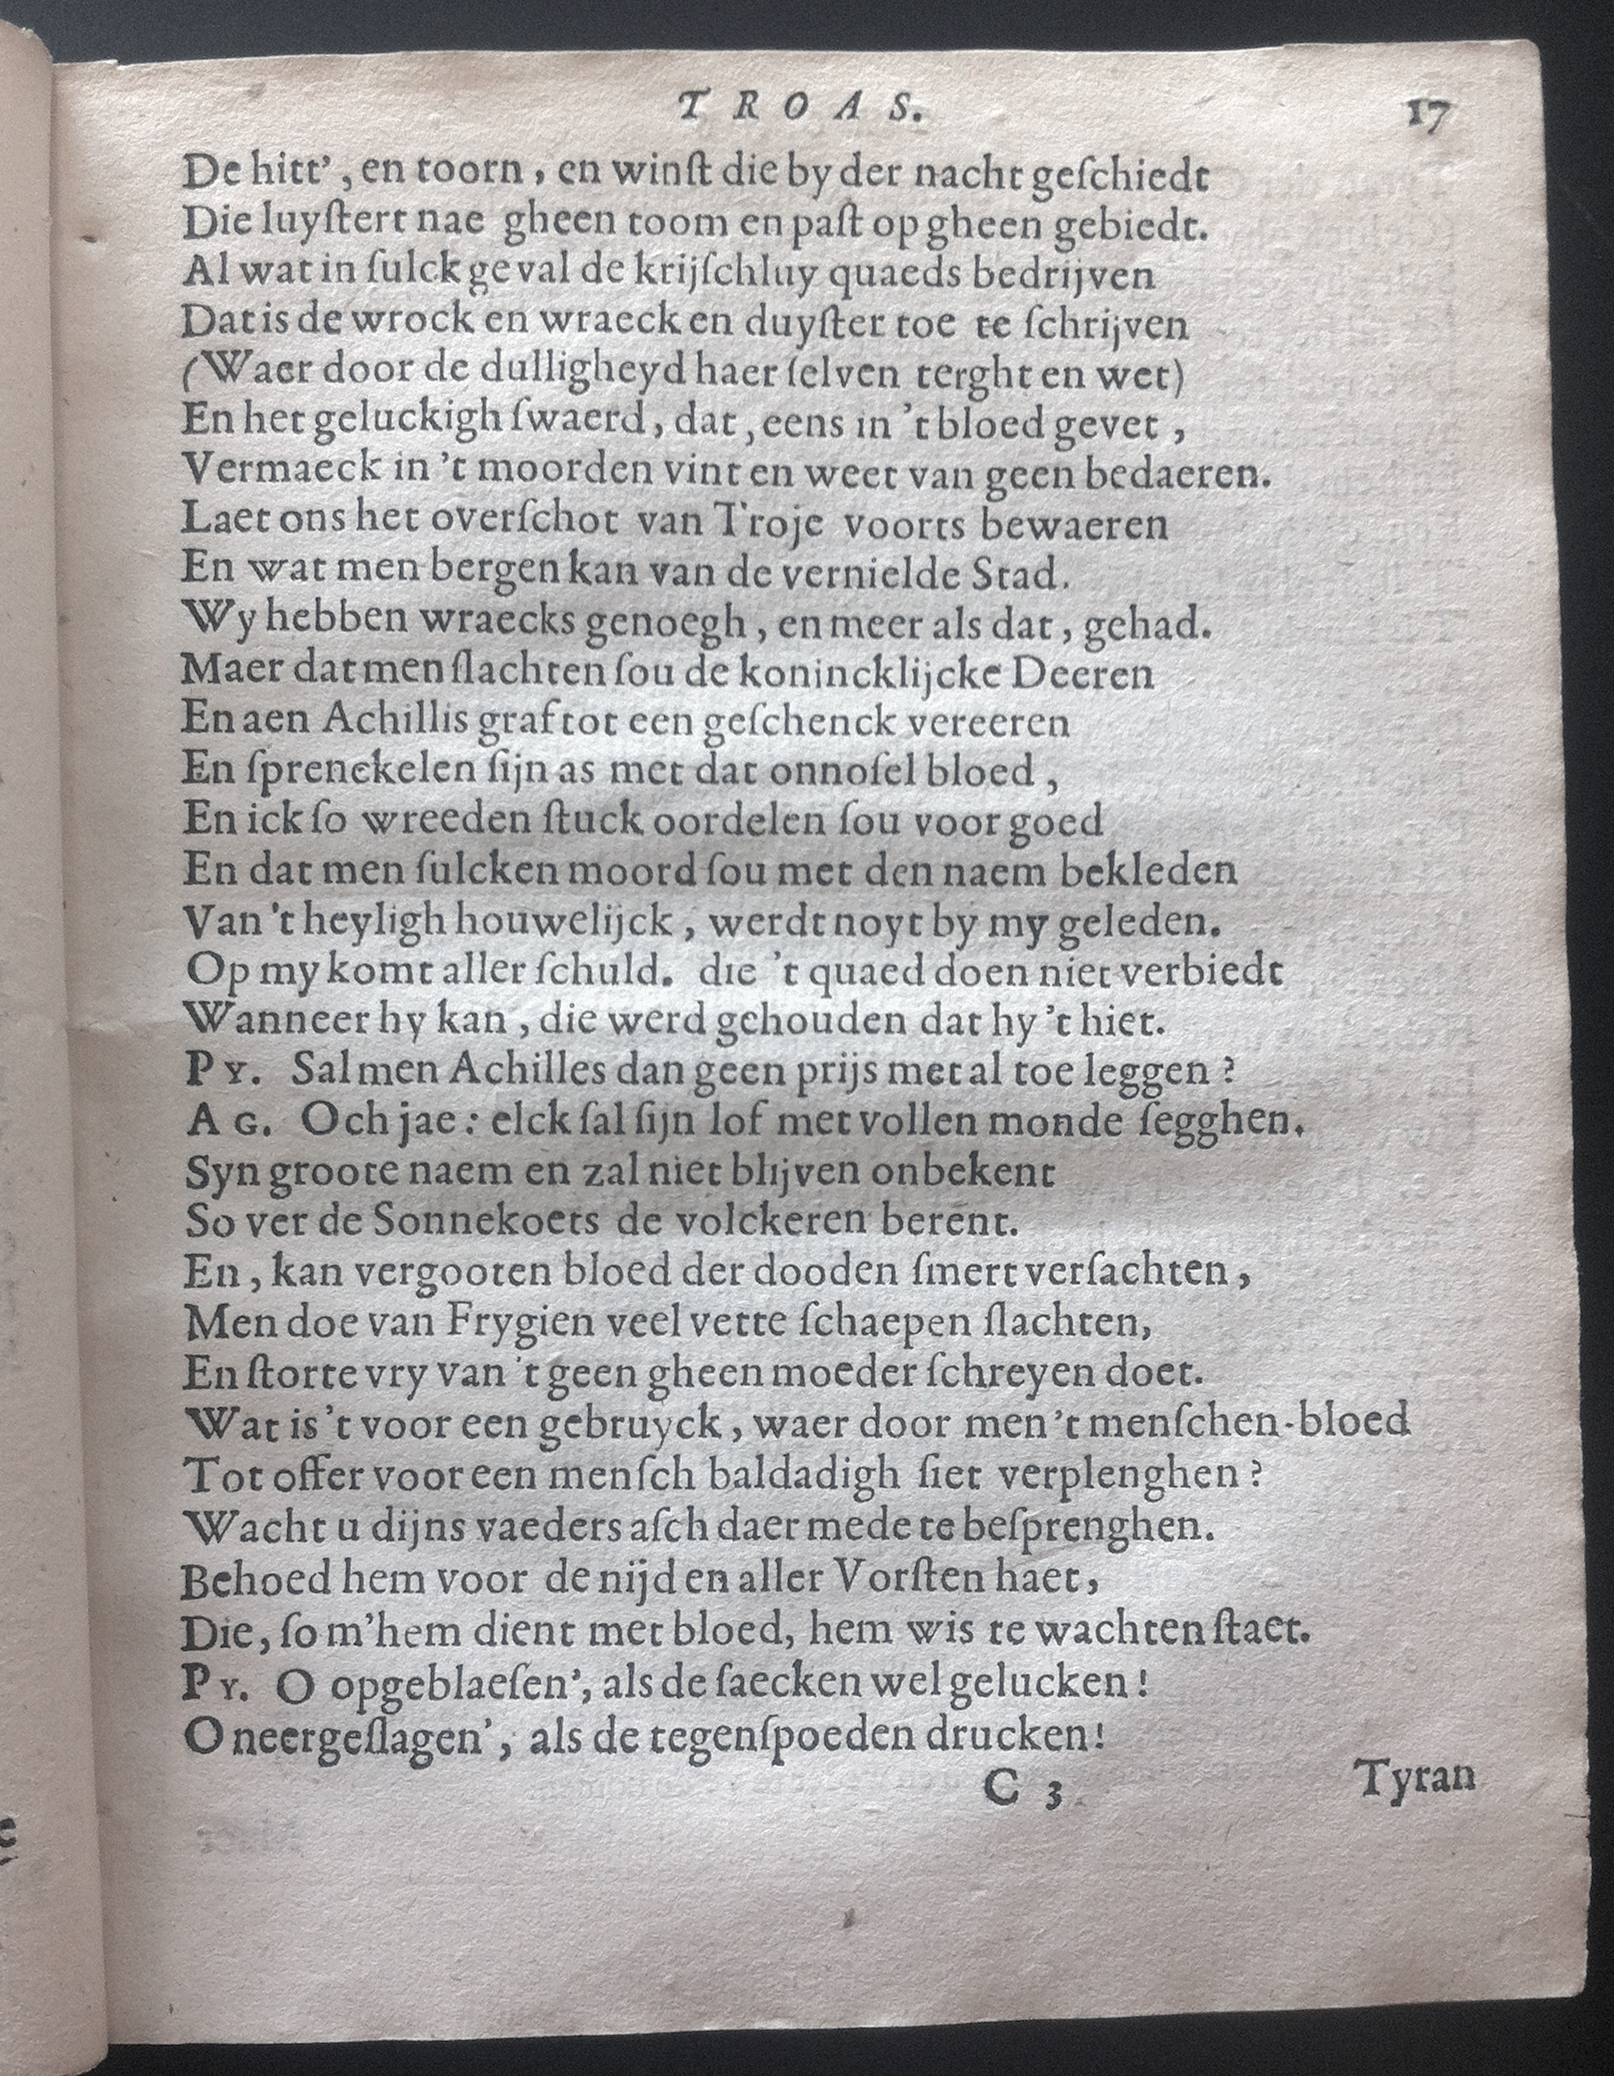 TROAS. 17
De hitt', en toorn, en winſt die by der nacht geſchiedt
Die luyſtert nae gheen toom en paſt op gheen gebiedt.
Al wat in ſulck geval de krijſchluy quaeds bedrijven
Dat is de wrock en wraeck en duyſter toe te ſchrijven
(Waer door de dulligheyd haer ſelven terght en wet)
En het geluckigh ſwaerd, dat, eens in 't bloed gevet,
Vermaeck in 't moorden vint en weet van geen bedaeren.
Laet ons het overſchot van Troje voorts bewaeren
En wat men bergen kan van de vernielde Stad.
Wy hebben wraecks genoegh, en meer als dat, gehad.
Maer dat men ſlachten ſou de konincklijcke Deeren
En aen Achillis graf tot een geſchenck vereeren
En ſprenckelen ſijn as met dat onnoſel bloed,
En ick ſo wreeden ſtuck oordelen ſou voor goed
En dat men ſulcken moord ſou met den naem bekleden
Van 't heyligh houwelijck, werdt noyt by my geleden.
Op my komt aller ſchuld. die 't quaed doen niet verbiedt
Wanneer hy kan, die werd gehouden dat hy 't hiet.
PY. Sal men Achilles dan geen prijs met al toe leggen?
AG. Och jae: elck ſal ſijn lof met vollen monde ſegghen.
Syn groote naem en zal niet blijven onbekent
So ver de Sonnekoets de volckeren berent.
En, kan vergooten bloed der dooden ſmert verſachten,
Men doe van Frygien veel vette ſchaepen ſlachten,
En ſtorte vry van 't geen gheen moeder ſchreyen doet.
Wat is 't voor een gebruyck, waer door men 't menſchen-bloed
Tot offer voor een menſch baldadigh ſiet verplenghen?
Wacht u dijns vaeders aſch daer mede te beſprenghen.
Behoed hem voor de nijd en aller Vorſten haet,
Die, ſo m'hem dient met bloed, hem wis te wachten ſtaet.
PY. O opgeblaeſen', als de ſaecken wel gelucken!
O neergeſlagen', als de tegenſpoeden drucken!
C 3 Tyran